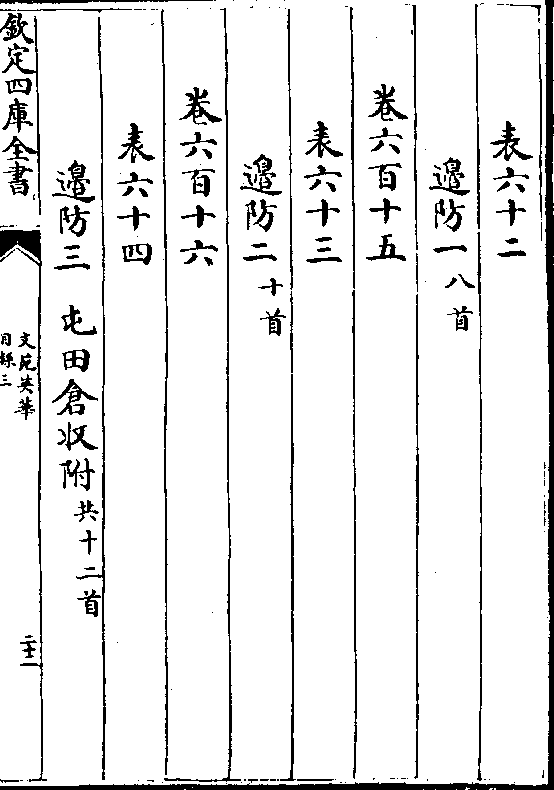 表六十二
邉防一八首
卷六百十五
表六十三
邉防二十首
卷六百十六
表六十四
邉防三 屯田倉収附共十二首
欽定四庫全書
文苑英華
目録三